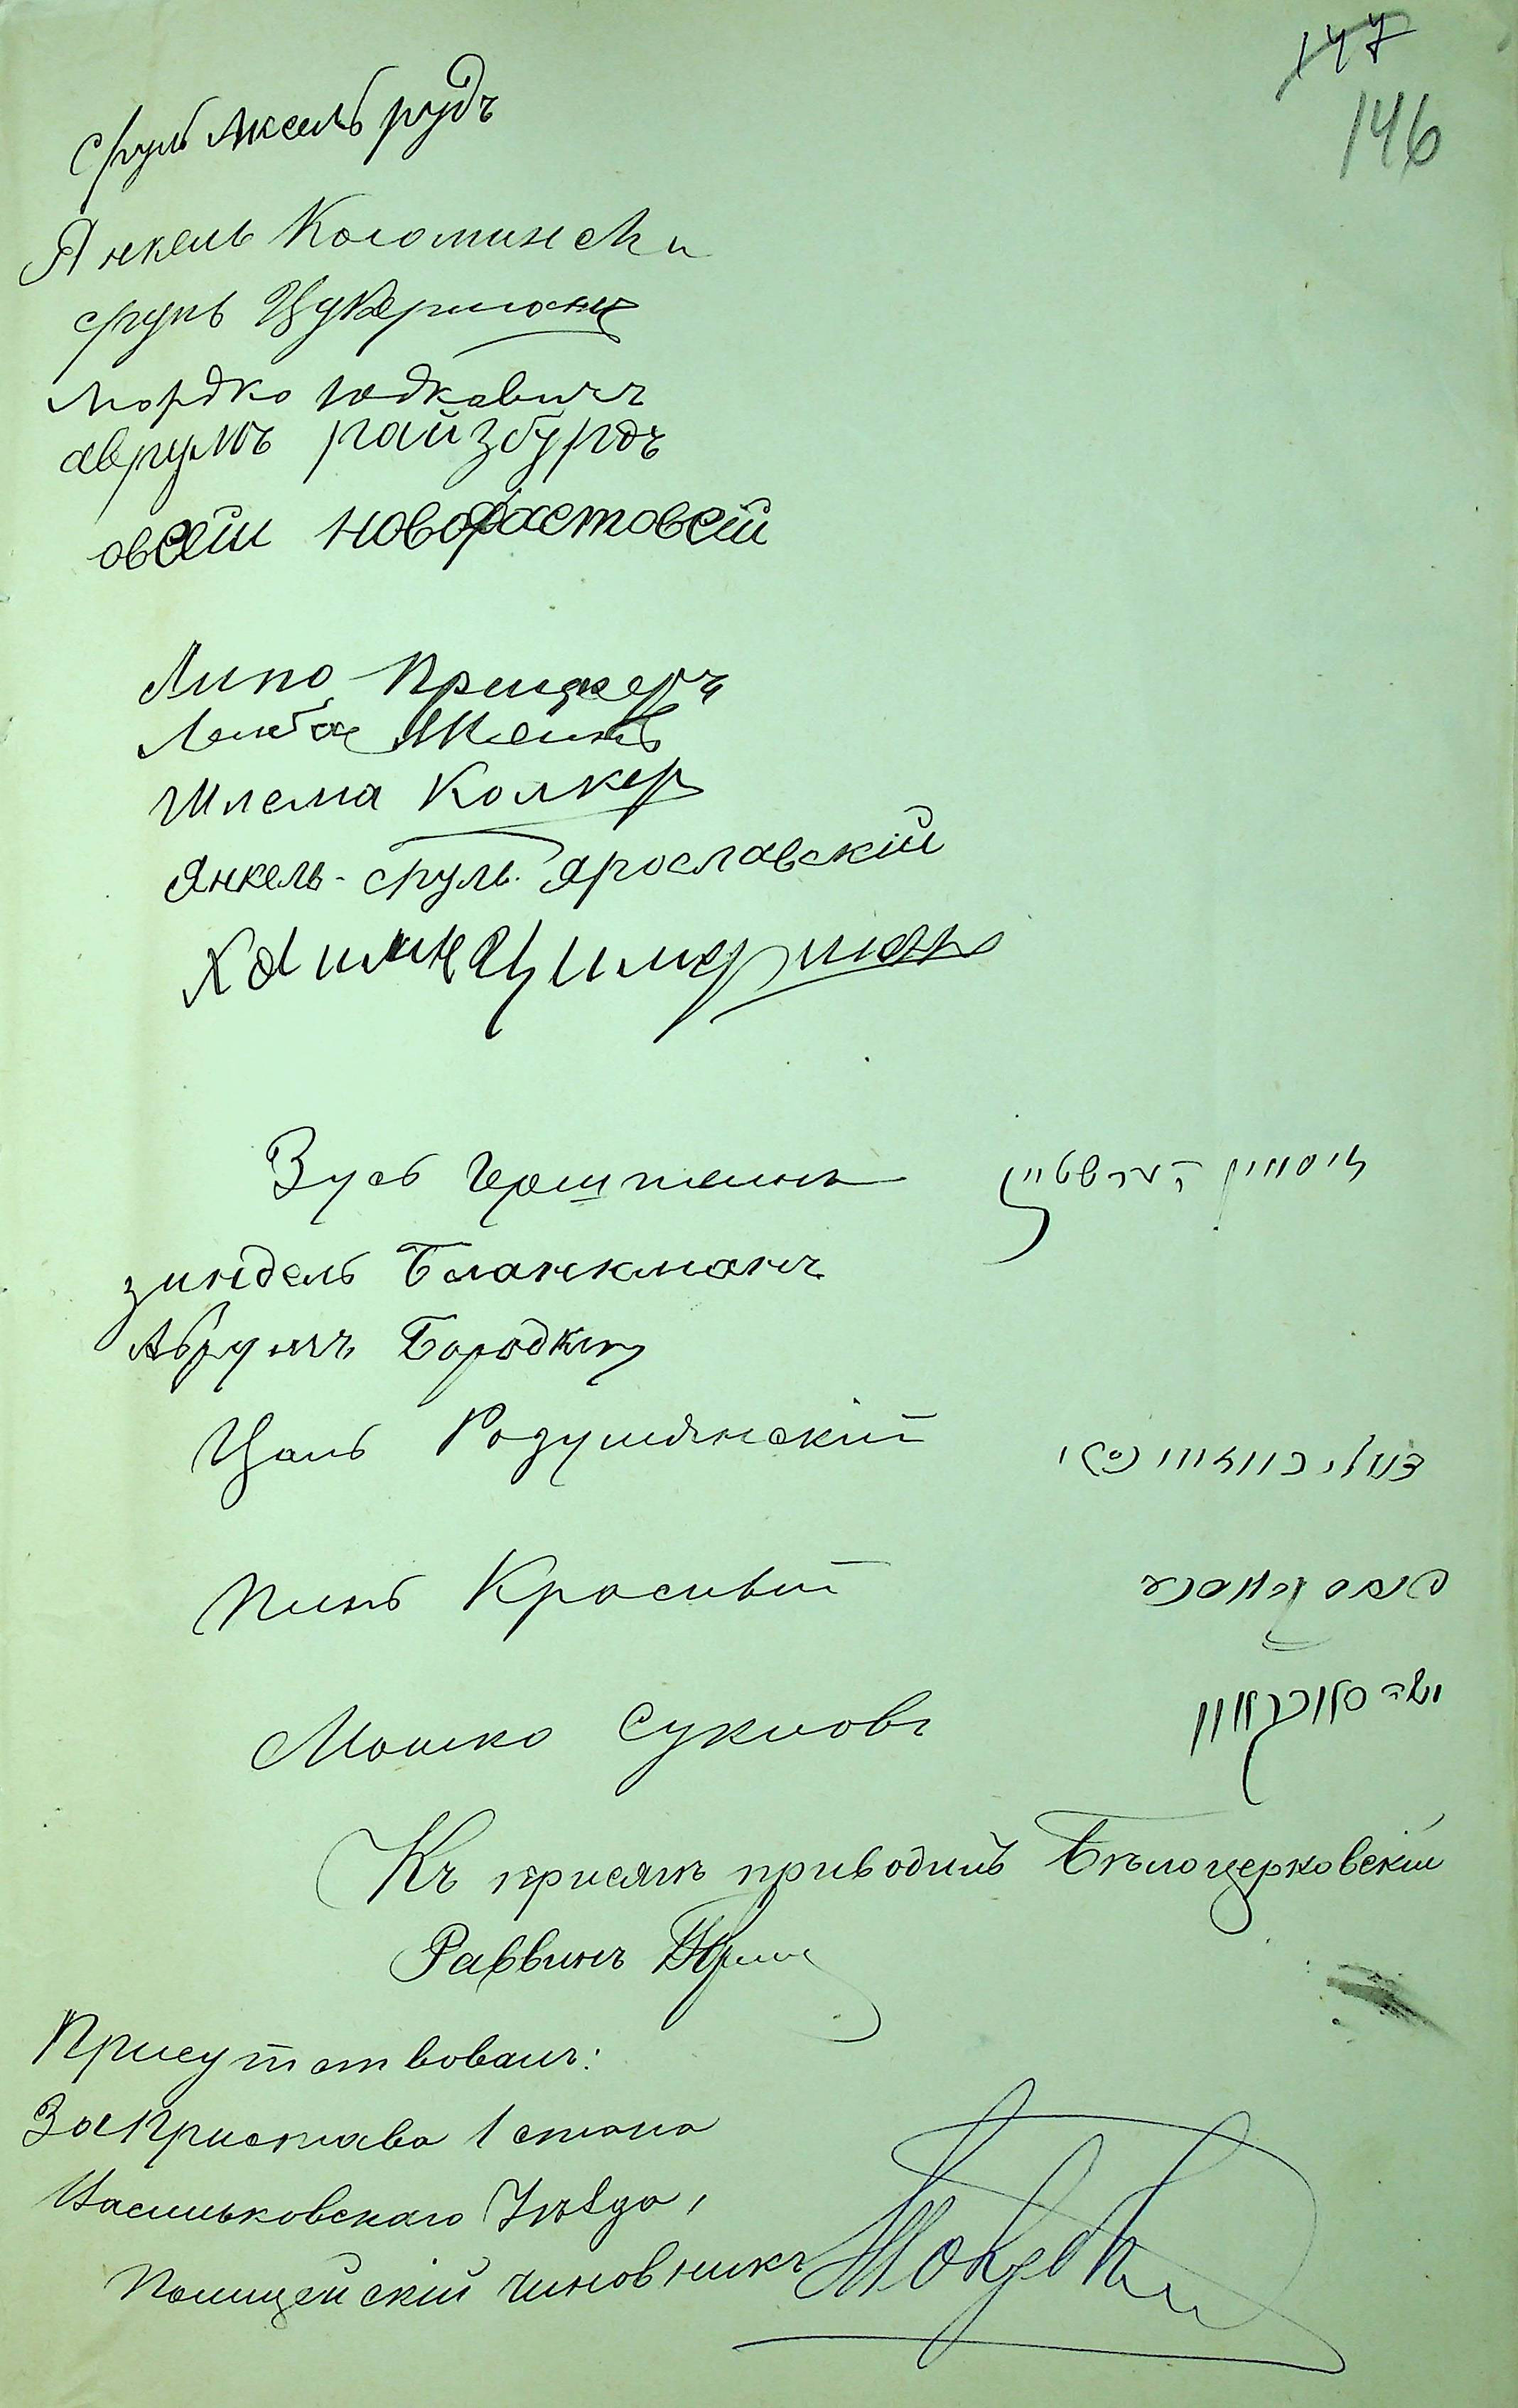 147
146
Сруль Аксельрудъ
Янкель Коломински
Сруль Цукерманъ
Мордко Юдкавичъ
аврумъ райзбурдъ
овсей новофастовский
Липо Прицкеръ
Лейба
Шлема Колкер
Янкель-Сруль Ярославскій
Хаимъ Цимерманъ
Зусь Герштеинъ זיסמאן הערשטיין
зиндель Бланкманъ
Аврумъ Бородкин
Цаль Розумянскій
Пинь Красивый פיני
Мошко Сукновъ משה
Къ присягѣ приводилъ Бѣлоцерковскій
Раввинъ
Присутствовалъ:
За Пристава 1 стана
Васильковскаго Уѣзда,
Полицейскій чиновникъ